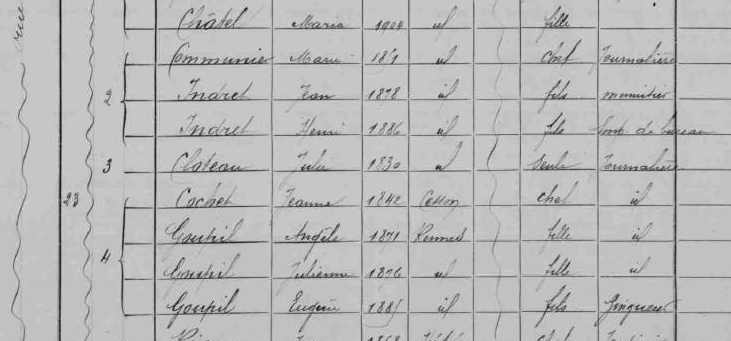 Châtel Maria 1904 id fille
Communier Marie id chef Journalière
2 Indret Jean 1878 id fils menuisier
Indret Henri 1886 id fils de bureau
3 Clateau Julie 1830 id seule Journalière
23
Cochet Jeanne 1842 Cesson chef id
Goupil Angèle 1871 Rennes fille id
4 Goupil Julienne 1876 id fille id
Goupil Eugène id fils